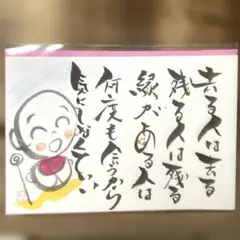 去る人は去る
残る人は残る
縁がある人は
何度も会うから
気にしなくていい